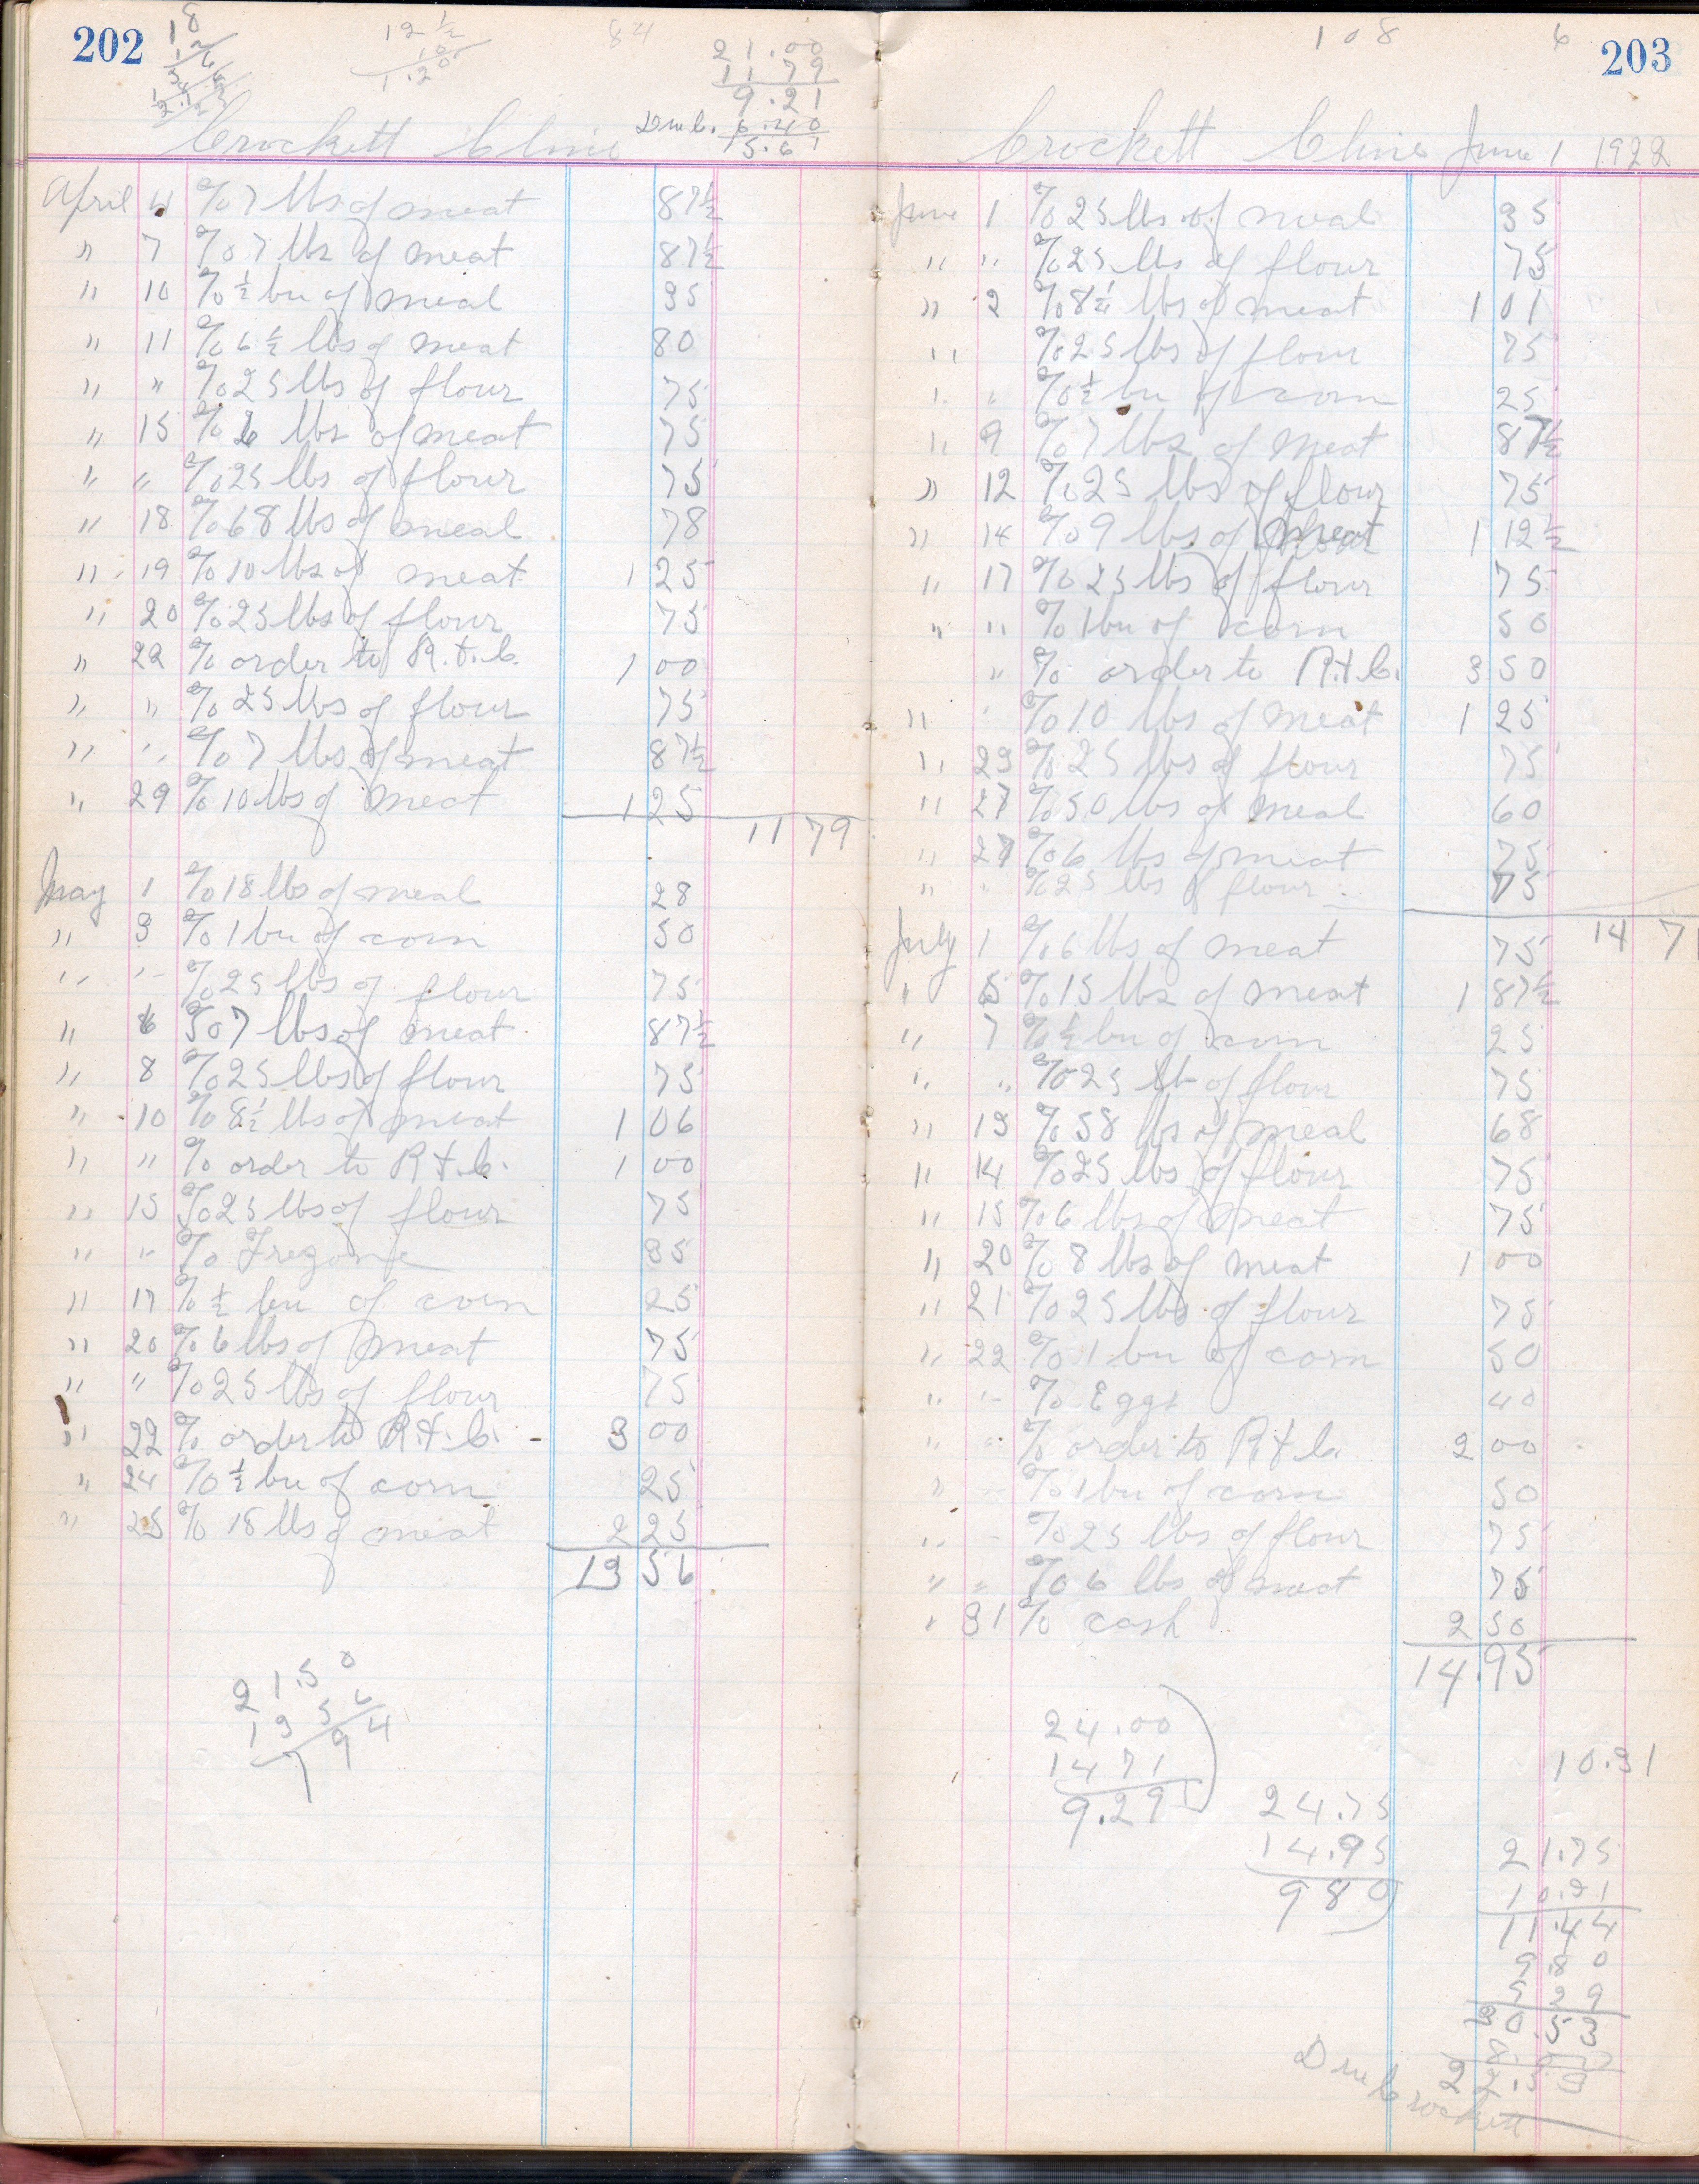 202
18
12 1/2
10
1.20
84
21.00
11 79
9.21
Due C. 6.40
15.61
Crockett Cline
April 4 % 7 lbs of meat 87½
" 7 % 7 lbs of meat 87½
" 10 % ½ bu of meal 35
" 11 % 6½ lbs of meat 80
" " % 25 lbs of flour 75
" 15 % 6 lbs of meat 75
" " % 25 lbs of flour 75
" 18 % 68 lbs of meal 78
" 19 % 10 lbs of meat 1 25
" 20 % 25 lbs of flour 75
" 22 % order to R.t.C. 1 00
" " % 25 lbs of flour 75
" " % 7 lbs of meat 87½
" 29 % 10 lbs of meat 1 25
11 79
May 1 % 18 lbs of meal 28
" 3 % 1 bu of corn 50
" " % 25 lbs of flour 75
" 6 % 7 lbs of meat 87½
" 8 % 25 lbs of flour 75
" 10 % 8½ lbs of meat 1 06
" " % order to R.t.C. 1 00
" 15 % 25 lbs of flour 75
" " % Frezone 35
" 17 % ½ bu of corn 25
" 20 % 6 lbs of meat 75
" " % 25 lbs of flour 75
" 22 % order to R.t.C. - 3 00
" 24 % ½ bu of corn 25
" 25 % 18 lbs of meat 2 25
13 56
21.50
13 56
7 94
108 6
203
Crockett Cline June 1 1922
June 1 % 25 lbs of meal 35
" " % 25 lbs of flour 75
" 2 % 8¼ lbs of meat 1 01
" % 25 lbs of flour 75
" " % ½ bu of corn 25
" 9 % 7 lbs of meat 87½
" 12 % 25 lbs of flour 75
" 14 % 9 lbs of meat 1 12½
" 17 % 25 lbs of flour 75
" " % 1 bu of corn 50
" % order to R.t.C. 3 50
" " % 10 lbs of meat 1 25
" 23 % 25 lbs of flour 75
" 27 % 50 lbs of meal 60
" 27 % 6 lbs of meat 75
" " % 25 lbs of flour 75
14 71
July 1 % 6 lbs of meat 75
" 5 % 15 lbs of meat 1 87½
" 7 % ½ bu of corn 25
" " % 25 lb of flour 75
" 13 % 58 lbs of meal 68
" 14 % 25 lbs of flour 75
" 15 % 6 lbs of meat 75
" 20 % 8 lbs of meat 1 00
" 21 % 25 lbs of flour 75
" 22 % 1 bu of corn 50
" " % Eggs 40
" " % order to R.t.C. 2 00
" " % 1 bu of corn 50
" - % 25 lbs of flour 75
" " % 6 lbs of meat 75
" 31 % cash 2 50
14.95
24.00
14 71
9.29
10.31
24.75
14.95
9 80
21.75
10.31
11.44
9.80
9 29
30.53
22.53
Due Crockett